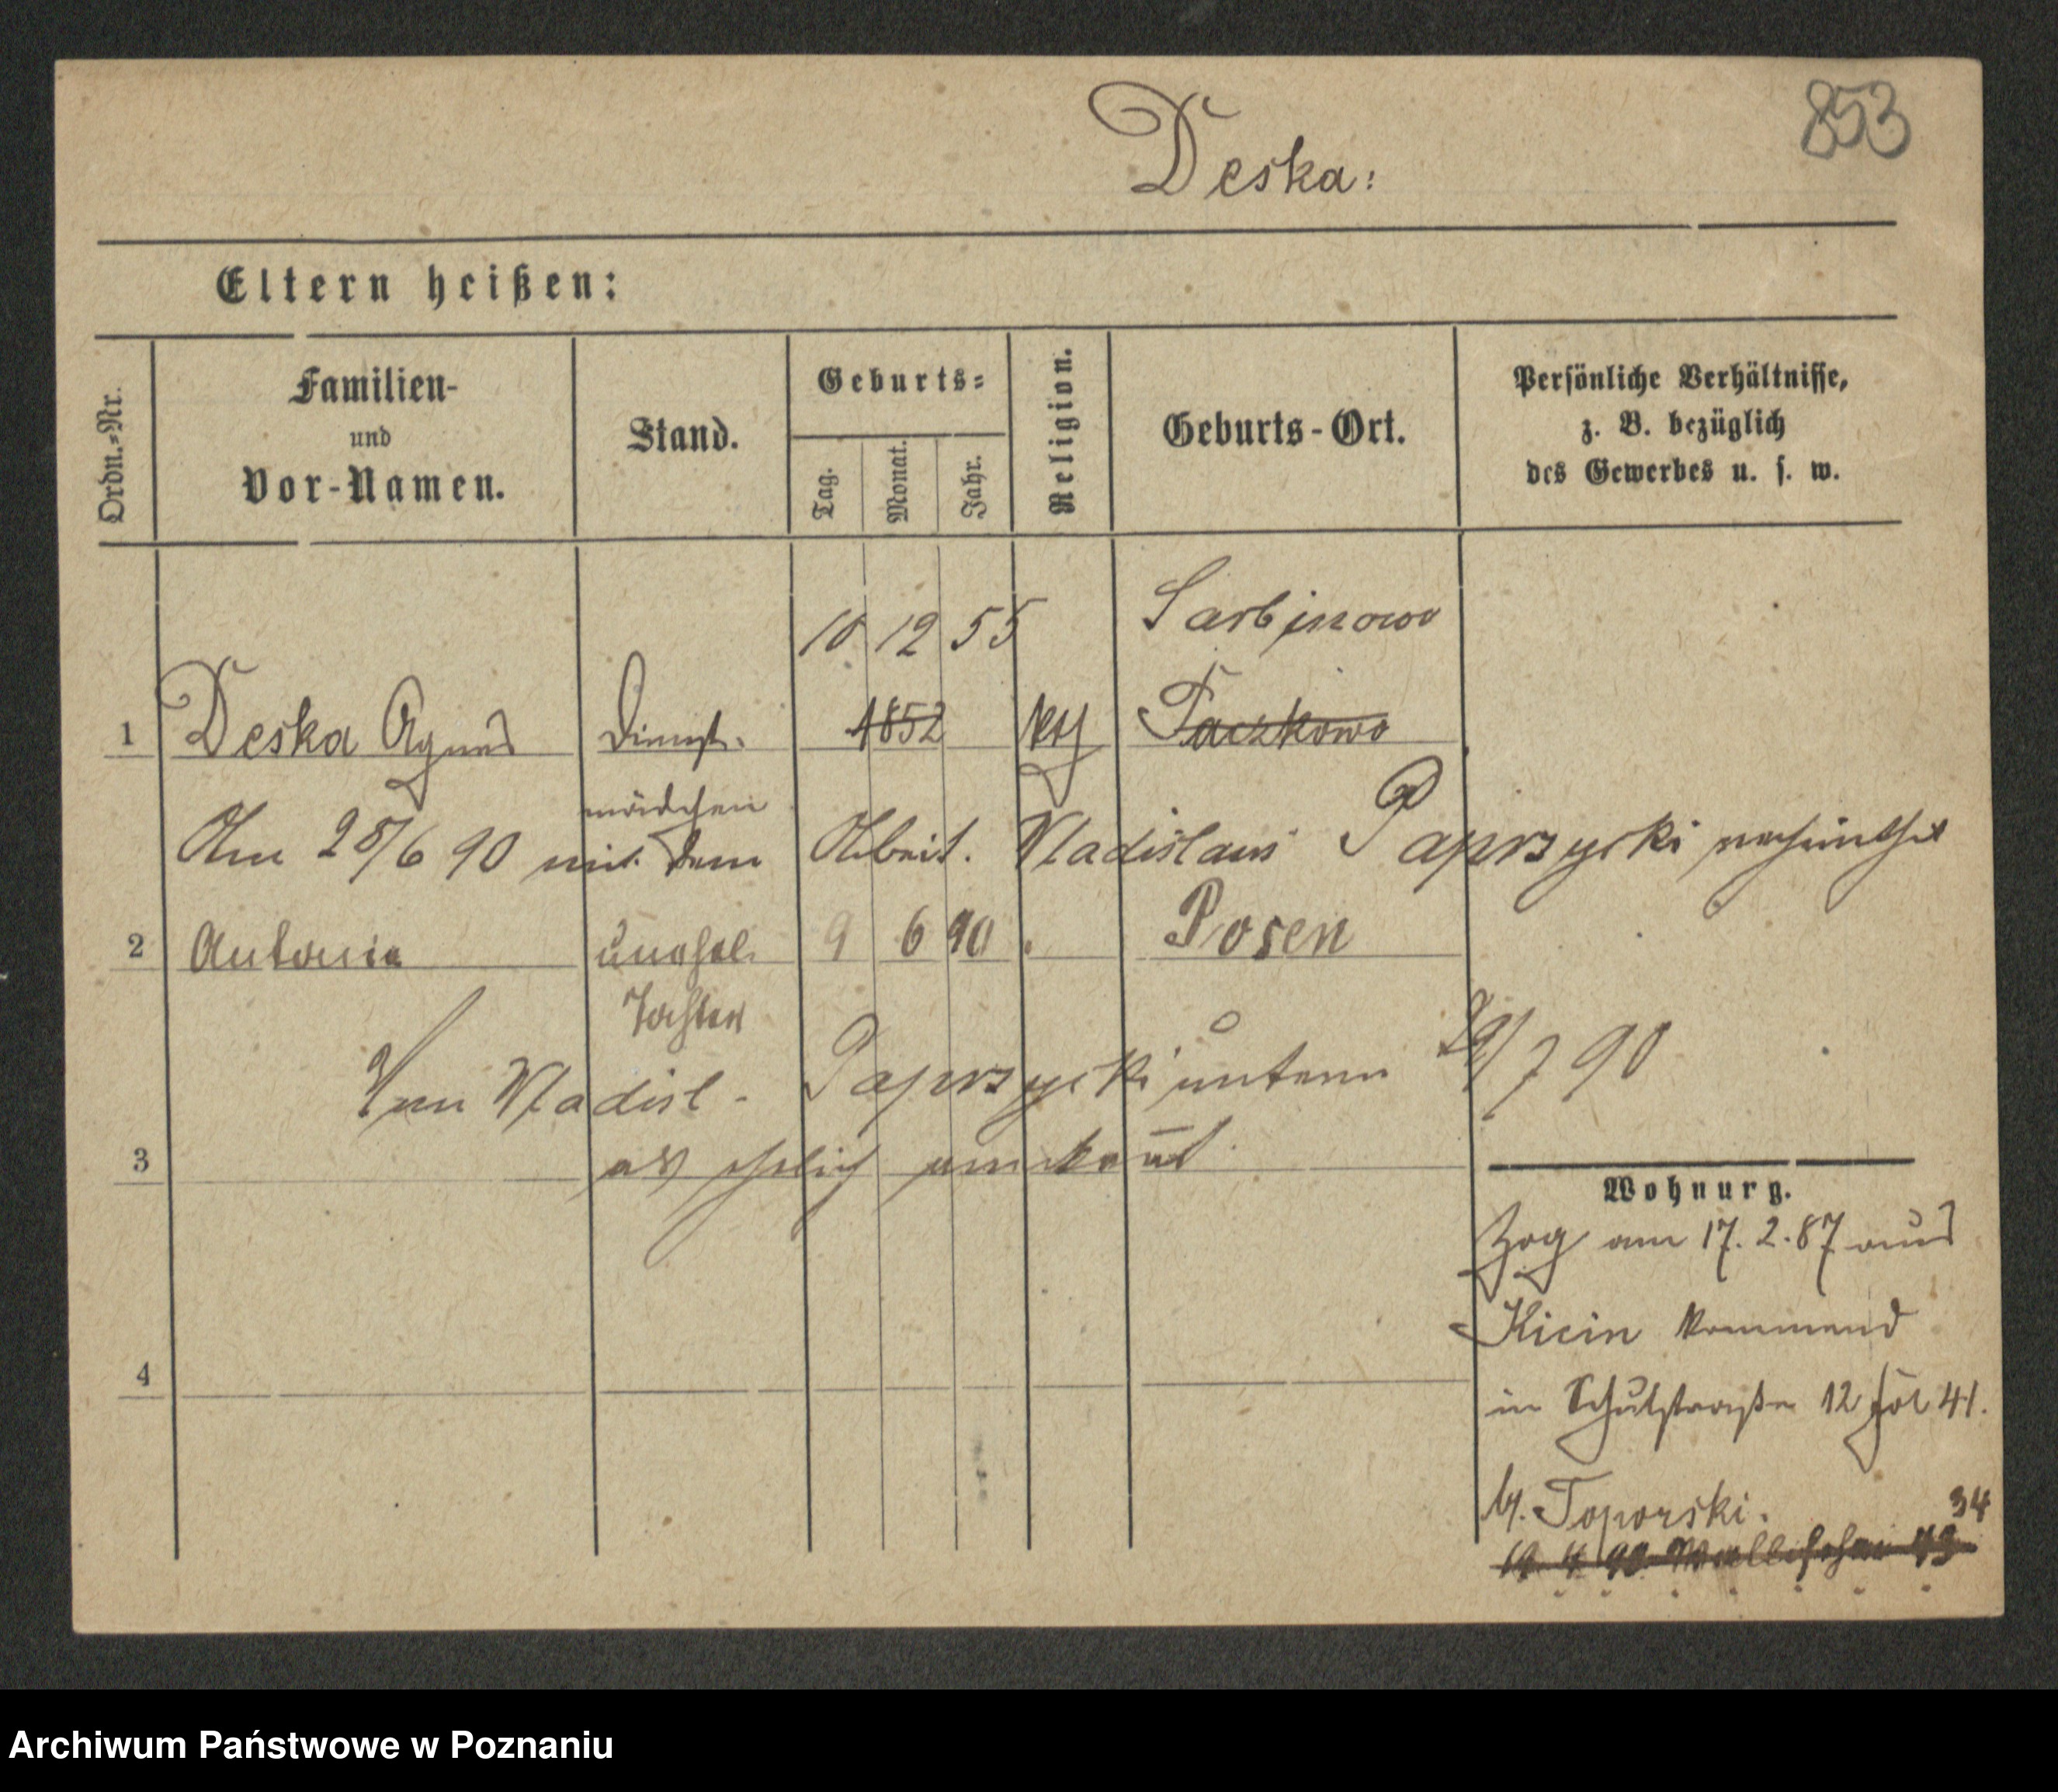 853
Deska:
Eltern heißen:
Ordn.-Nr.
Familien- und Vor-Namen.
Stand.
Geburts-
Tag.
Monat.
Jahr.
Religion.
Geburts-Ort.
Persönliche Verhältnisse,
z. B. bezüglich
des Gewerbes u. s. w.
10 12 55 Sarbinowo
1 Deska Agnes Dienst- 1852 kth Taczkowo
mädchen
Am 28/6 90 mit dem Arbeit. Vladislaus Paprzycki verheirathet
2 Antonia unehel. 9 6 90 Posen
Tochter
Vom Vladisl. Paprzycki unterm 29/7 90
3 als ehelich anerkannt.
Wohnung.
Zog am 17.2.87 aus
Kicin kommend
in Schulstraße 12 41.
4
b/. Toporski.
34
19. 4. 90. Wallischei 73
Archiwum Państwowe w Poznaniu